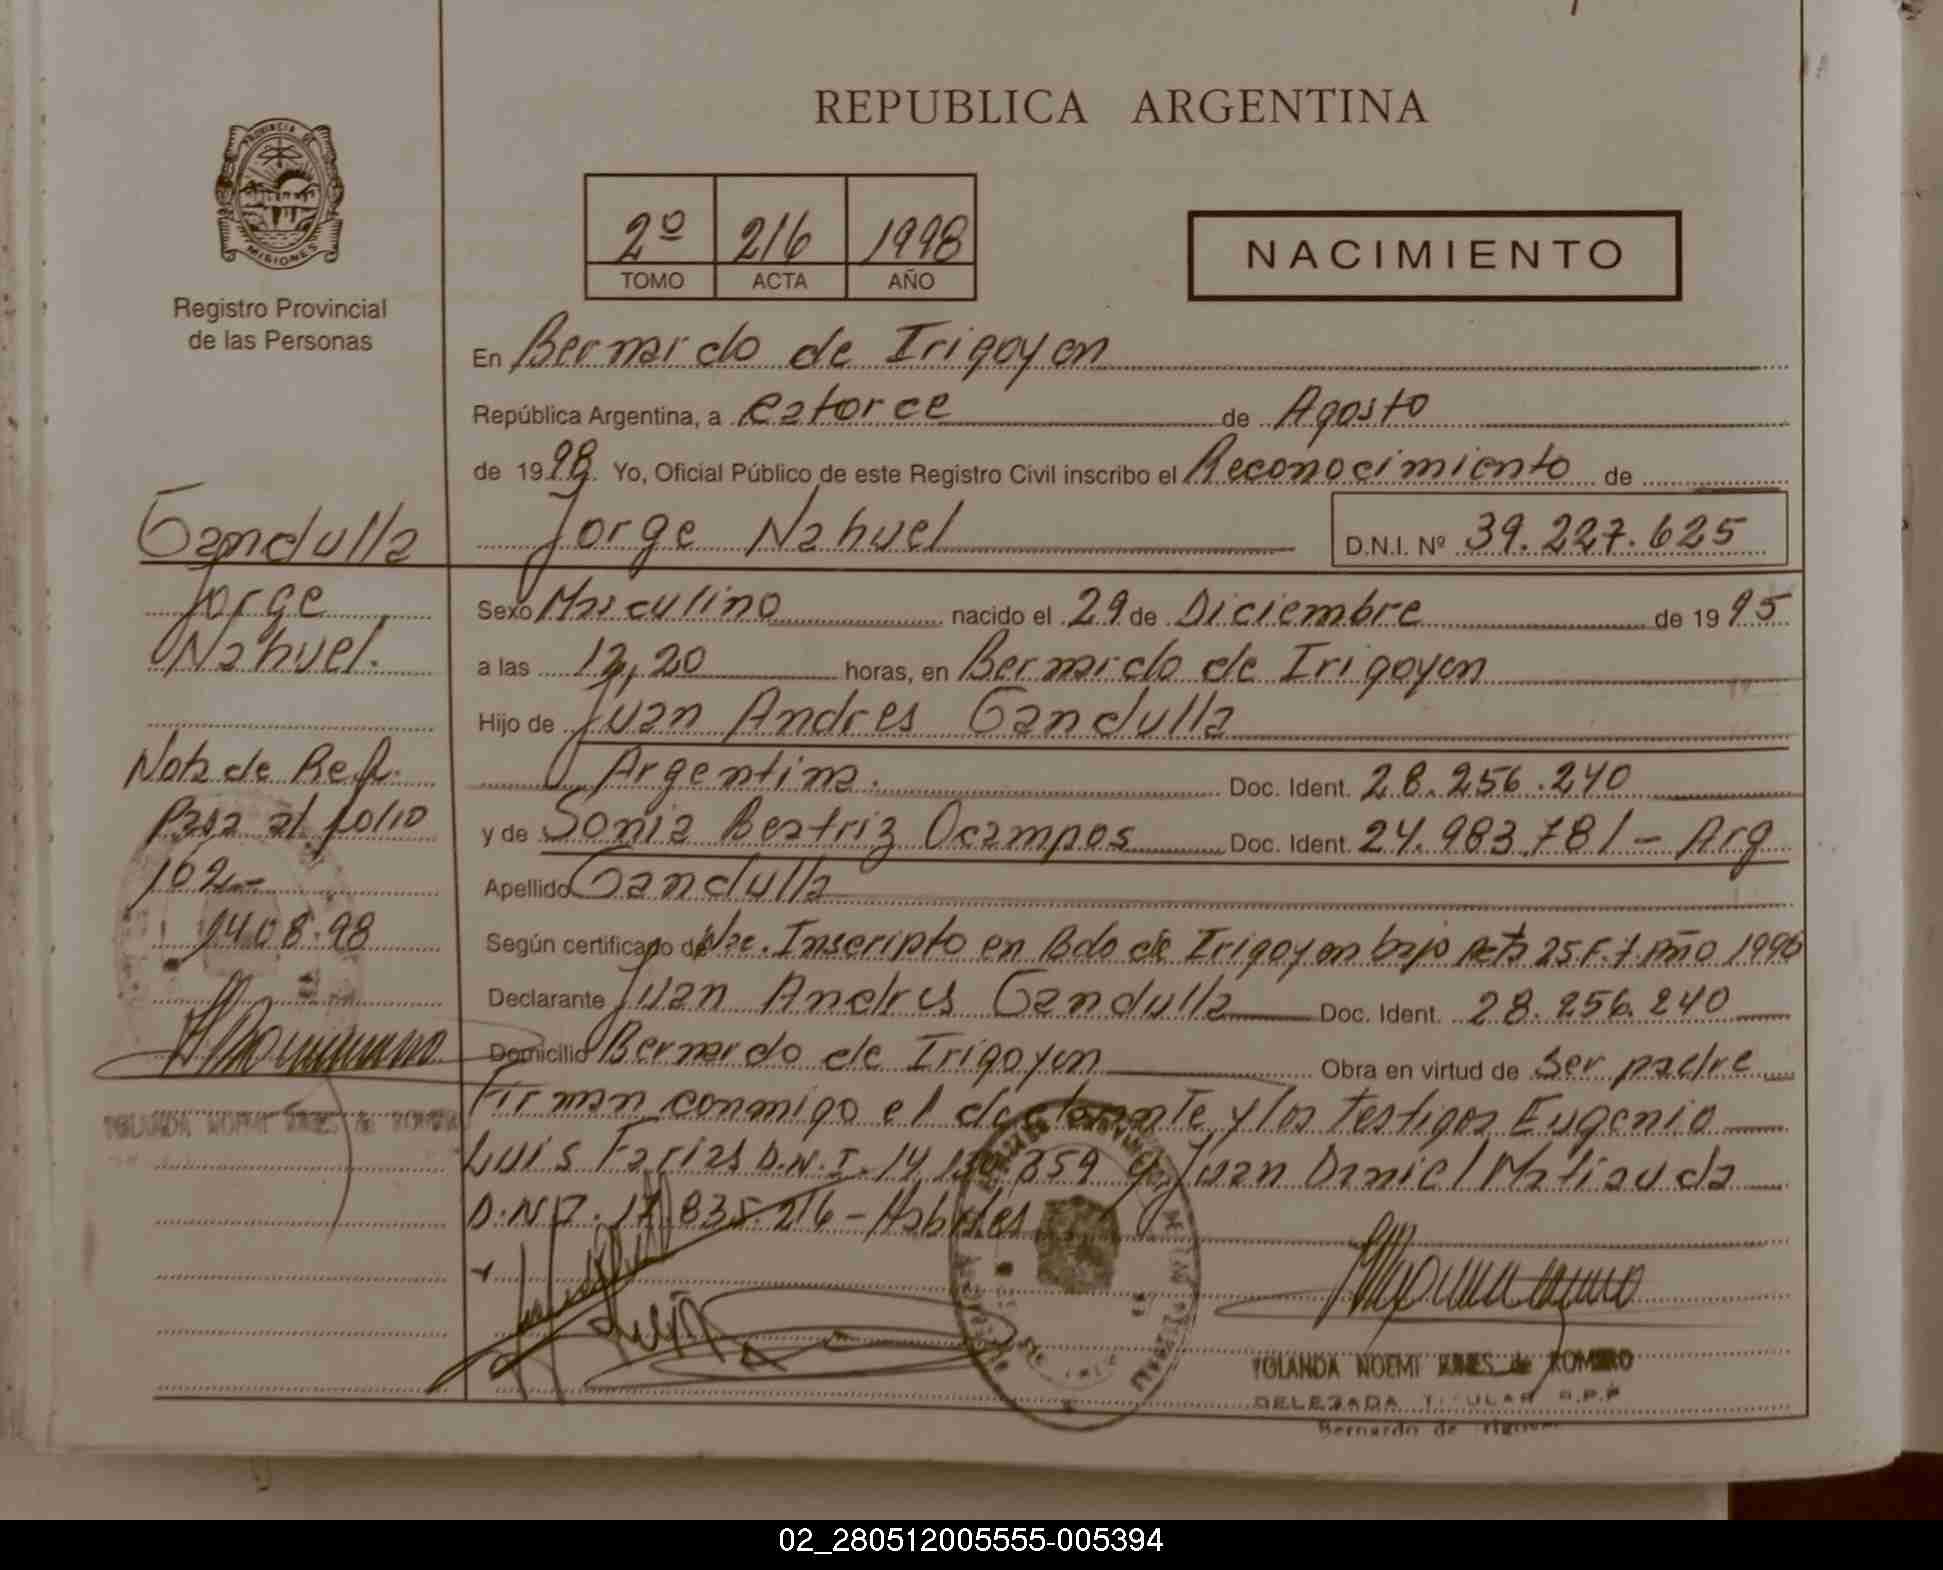 REPUBLICA ARGENTINA
PROVINCIA DE
MISIONES
Registro Provincial
de las Personas
2º 216 1998
TOMO ACTA AÑO
NACIMIENTO
En Bernardo de Irigoyen
República Argentina, a catorce de Agosto
de 1998. Yo, Oficial Público de este Registro Civil inscribo el Reconocimiento de
Jorge Nahuel D.N.I. Nº 39.227.625
Sexo Masculino nacido el 29 de Diciembre de 1995
a las 12,20 horas, en Bernardo de Irigoyen
Hijo de Juan Andres Gandulla
Argentina. Doc. Ident. 28.256.240
y de Sonia Beatriz Ocampos Doc. Ident. 24.983.781 - Arg
Apellido Gandulla
Según certificado de Nac. Inscripto en Bdo de Irigoyen bajo Acta 25 F. Año
Declarante Juan Andres Gandulla Doc. Ident. 28.256.240
Domicilio Bernardo de Irigoyen Obra en virtud de Ser padre
Firman conmigo el declarante y los testigos Eugenio
Luis Farias D.N.I. 14. 859 y Juan Daniel Matiauda
D.N.I. 17.835.216 - Habiles
YOLANDA NOEMI de ROMERO
DELEGADA TITULAR R.P.P
Bernardo de Irigoyen
Gandulla
Jorge
Nahuel.
Nota de Ref.
Pasa al folio
102.-
14.08.98
YOLANDA NOEMI de ROMERO
02_280512005555-005394